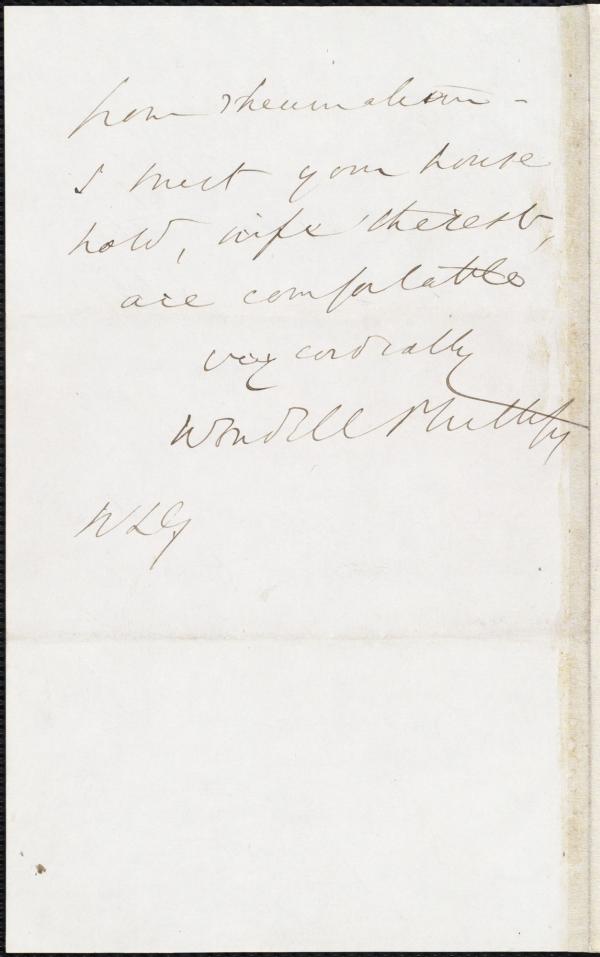 from rheumatism -
I trust your house
hold, wife & the rest,
are comfortable
very cordially
Wendell Phillips
WLG